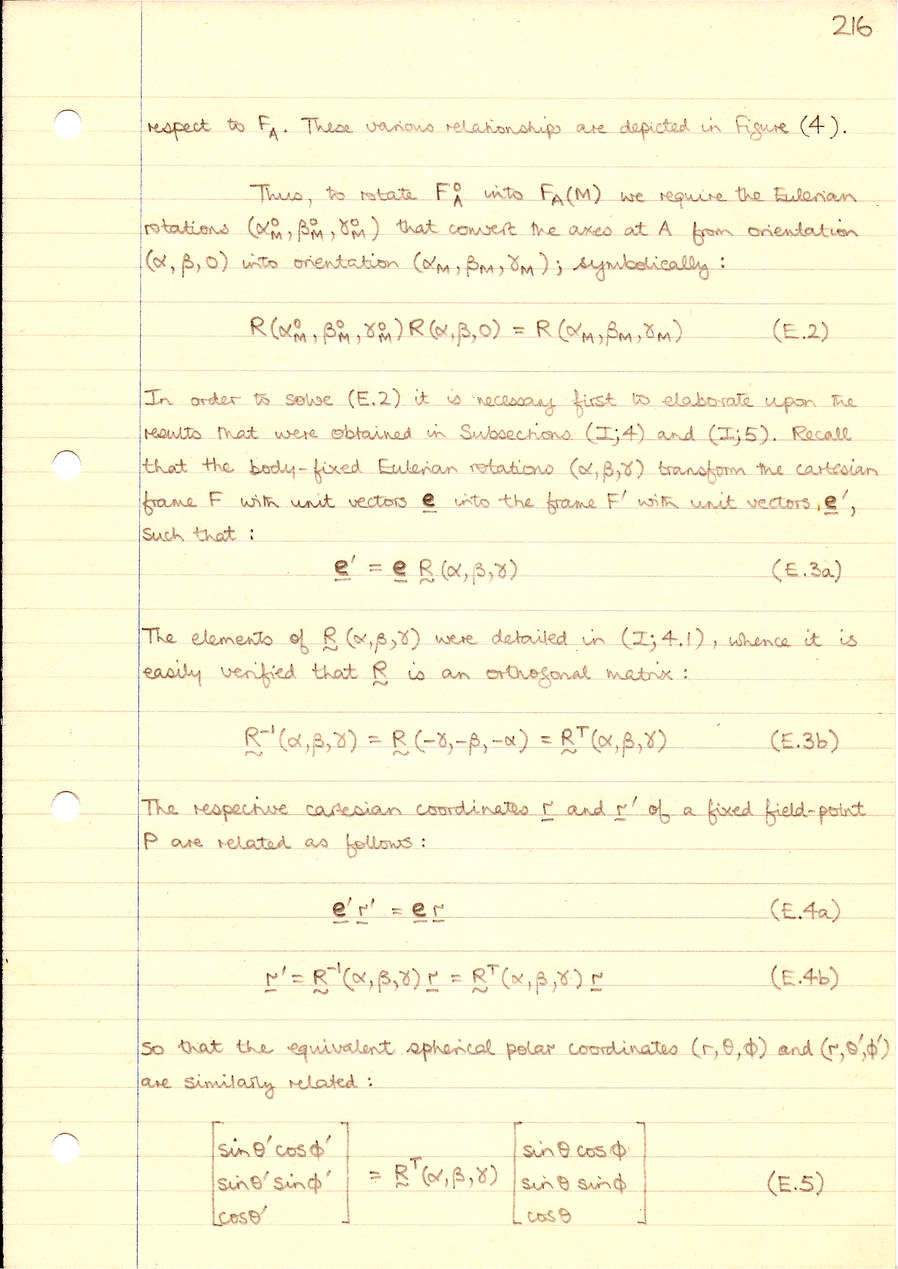 216
respect to F_A. These various relationships are depicted in Figure (4).
Thus, to rotate F_A^o into F_A(M) we require the Eulerian
rotations (α_M^o, β_M^o, γ_M^o) that convert the axes at A from orientation
(α, β, 0) into orientation (α_M, β_M, γ_M); symbolically:
R(α_M^o, β_M^o, γ_M^o) R(α, β, 0) = R(α_M, β_M, γ_M) (E.2)
In order to solve (E.2) it is necessary first to elaborate upon the
results that were obtained in Subsections (I;4) and (I;5). Recall
that the body-fixed Eulerian rotations (α, β, γ) transform the cartesian
frame F with unit vectors e into the frame F' with unit vectors, e',
such that:
e' = e R(α, β, γ) (E.3a)
The elements of R(α, β, γ) were detailed in (I; 4.1), whence it is
easily verified that R is an orthogonal matrix:
R⁻¹(α, β, γ) = R(-γ, -β, -α) = Rᵀ(α, β, γ) (E.3b)
The respective cartesian coordinates r and r' of a fixed field-point
P are related as follows:
e' r' = e r (E.4a)
r' = R⁻¹(α, β, γ) r = Rᵀ(α, β, γ) r (E.4b)
so that the equivalent spherical polar coordinates (r, θ, φ) and (r, θ', φ')
are similarly related:
[sinθ' cosφ'] [sinθ cosφ]
[sinθ' sinφ'] = Rᵀ(α, β, γ) [sinθ sinφ] (E.5)
[cosθ'] [cosθ]